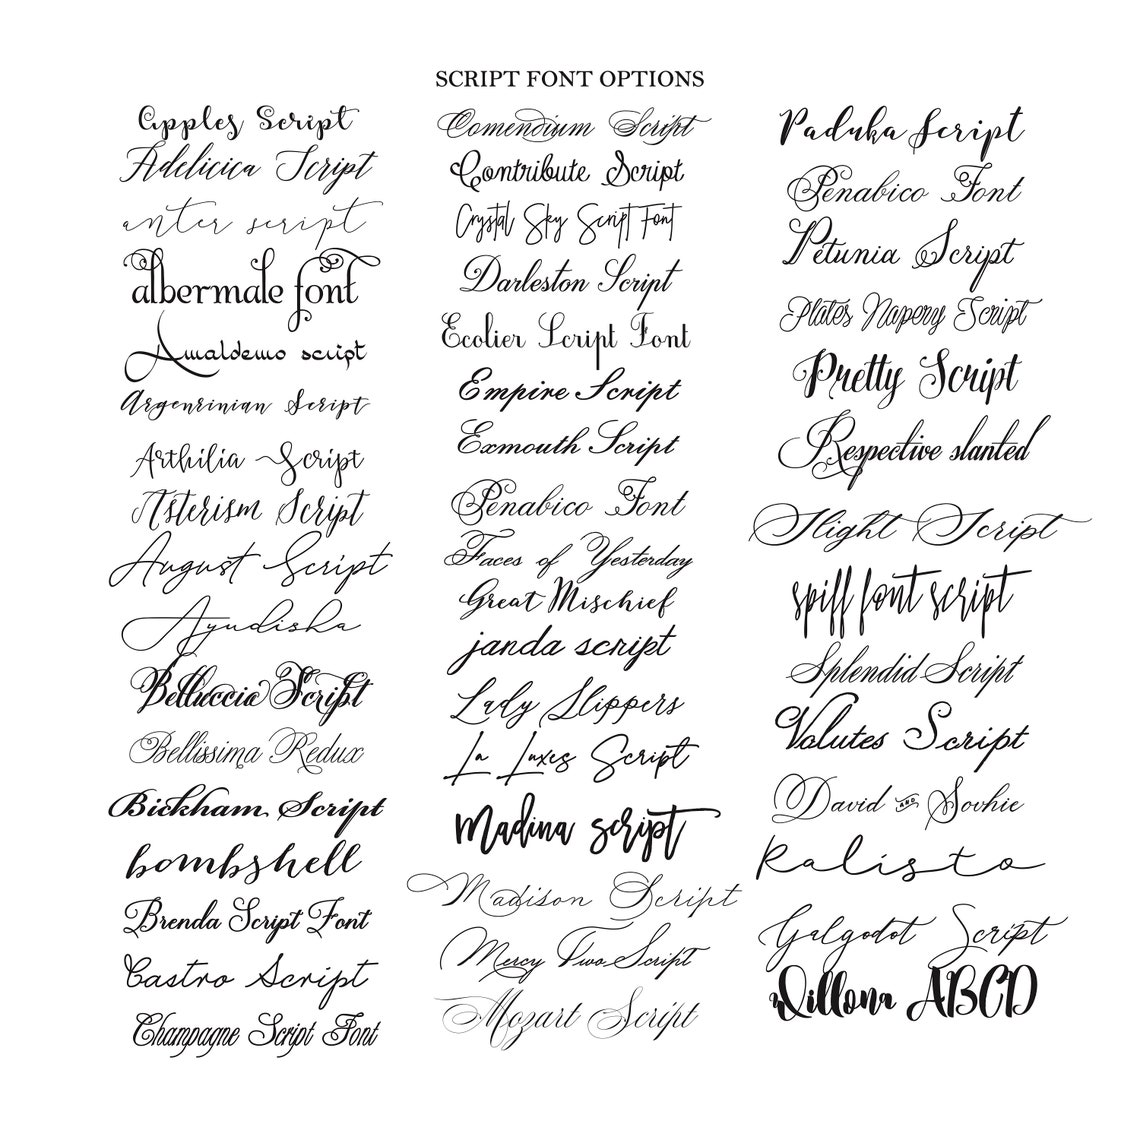 SCRIPT FONT OPTIONS
Apples Script
Adelicica Script
anter script
albermale font
Amaldemo script
Argenrinian Script
Arthilia Script
Asterism Script
August Script
Ayudisha
Belluccia Script
Bellissima Redux
Bickham Script
bombshell
Brenda Script Font
Castro Script
Champagne Script Font
Comendium Script
Contribute Script
Crystal Sky Script Font
Darleston Script
Ecolier Script Font
Empire Script
Exmouth Script
Penabico Font
Faces of Yesterday
Great Mischief
janda script
Lady Slippers
La Luxes Script
Madina script
Madison Script
Mercy Two Script
Mozart Script
Paduka Script
Penabico Font
Petunia Script
Plates Napery Script
Pretty Script
Respective slanted
Slight Script
spiff font script
Splendid Script
Volutes Script
David AND Sovhie
Kalisto
Galgodot Script
Willona ABCD